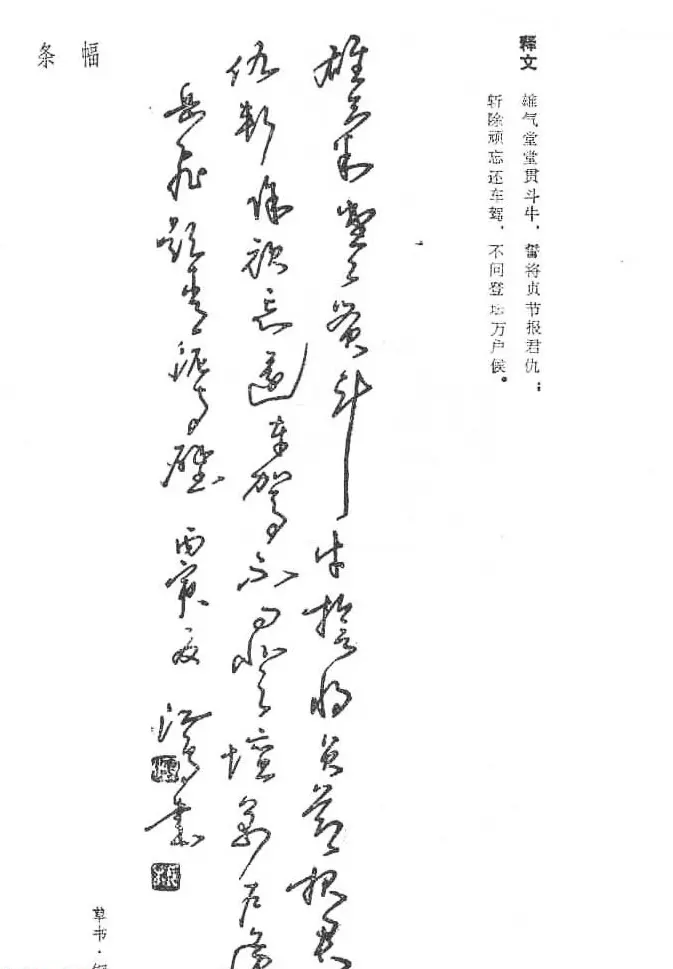 释文
雄气堂堂贯斗牛，誓将贞节报君仇；
斩除顽忘还车驾，不问登坛万户候。
雄氣堂堂貫斗牛誓将贞节报君
仇斬除顽忘還車驾不问登壇萬户侯
岳飛题青泥寺壁 丙寅夏 书
条幅
草书·